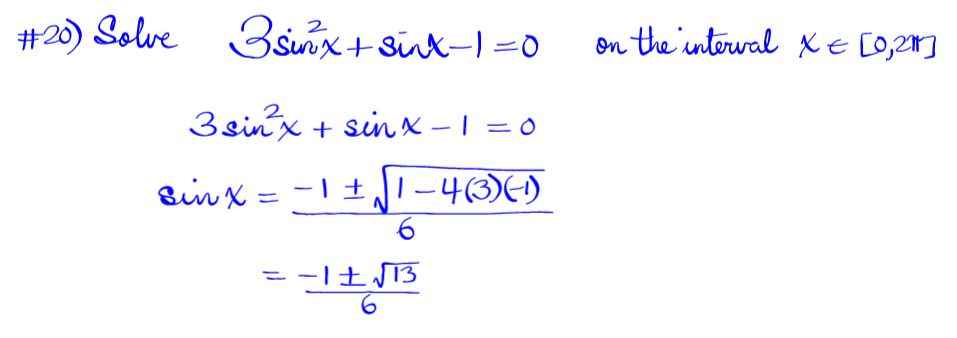 #20) Solve 3sin²x + sinx - 1 = 0 on the interval x ∈ [0,2π]
3sin²x + sinx - 1 = 0
sinx = (-1 ± √(1 - 4(3)(-1)))/6
= (-1 ± √13)/6